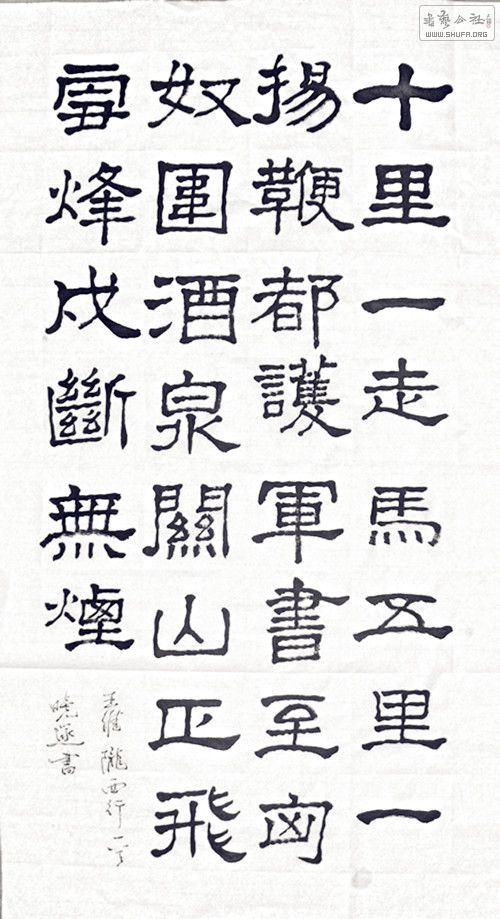 十里一走馬五里一
揚鞭都護軍書至匈
奴圍酒泉關山正飛
雪烽戍斷無煙
王維 隴西行一首
書
书艺公社
WWW.SHUFA.ORG